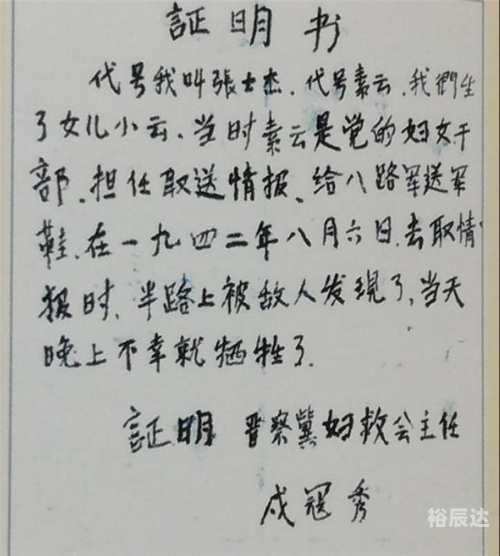 証明书
代号我叫張士杰、代号素云、我們生
了女儿小云、当时素云是党的妇女干
部、担任取送情报、给八路军送军
鞋、在一九四二年八月六日、去取情
报时、半路上被敌人发現了、当天
晚上不幸就牺牲了.
証明 晋察冀妇救会主任
戎冠秀
裕辰达